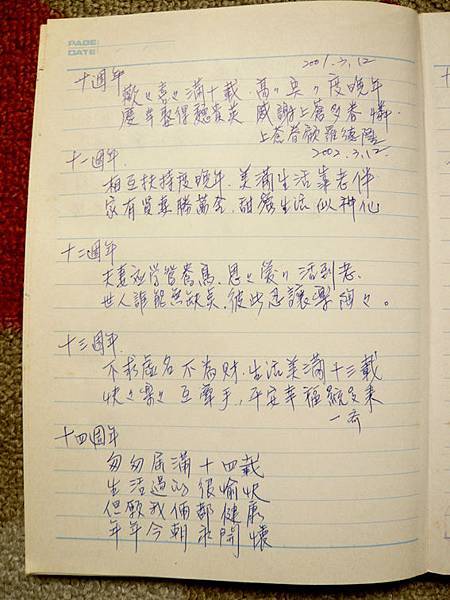 PAGE
DATE
2001.3.12
十週年
歡歡喜喜滿十載. 高高興興度晚年
慶幸娶得魏貴英 感謝上蒼多眷憐
上蒼眷顧羅德
2002.3.12.
十一週年.
相互扶持度晚年. 美滿生活靠老伴
家有賢妻勝萬金, 甜蜜生活似神仙
十二週年
夫妻應學鴛鴦鳥, 恩恩愛愛活到老.
世人誰能無缺失, 彼此忍讓樂陶陶。
十三週年.
不求虛名不為財. 生活美滿十三載
快快樂樂互牽手, 平安幸福
十四週年
匆匆屆滿十四載
生活過的很愉快
但願我倆都健康
年年今朝永開懷